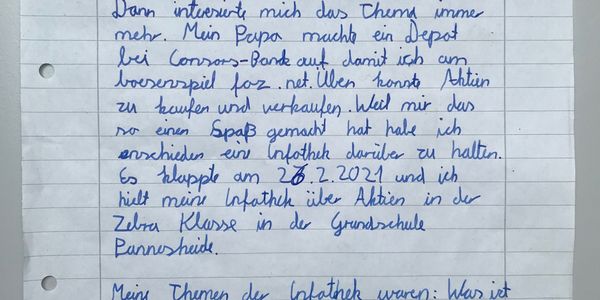 Dann interesirte mich das Thema immer
mehr. Mein Papa machte ein Depot
bei Consors-Bank auf damit ich am
boesenspiel faz.net. Üben konnte Aktien
zu kaufen und verkaufen. Weil mir das
so einen Spaß gemacht hat habe ich
enschieden eine Infothek darüber zu halten.
Es klappte am 26.2.2021 und ich
hielt meine Infothek über Aktien in der
Zebra Klasse in der Grundschule
Pannesheide.
Meine Themen der Infothek waren: Was ist